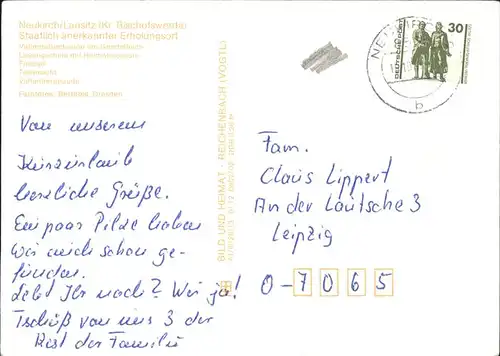 Neukirch/Lausitz (Kr. Bischofswerda)
Staatlich anerkannter Erholungsort
Fotofreund
BILD UND HEIMAT REICHENBACH (VOGTL)
30
DEUTSCHE POST
b
Von unserem
Kurzurlaub
herzliche Grüße.
Ein paar Pilze haben
wir auch schon ge-
funden.
Lebt Ihr noch? Wir ja!
Tschüß von uns 3 der
Rest der Familie
Fam.
Claus Lippert
An der Lautsche 3
Leipzig
O-7065